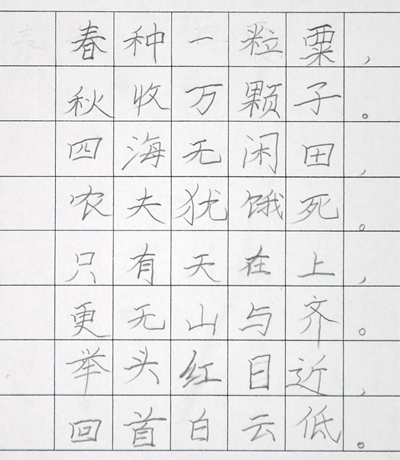 春种一粒粟，
秋收万颗子。
四海无闲田，
农夫犹饿死。
只有天在上，
更无山与齐。
举头红目近，
回首白云低。